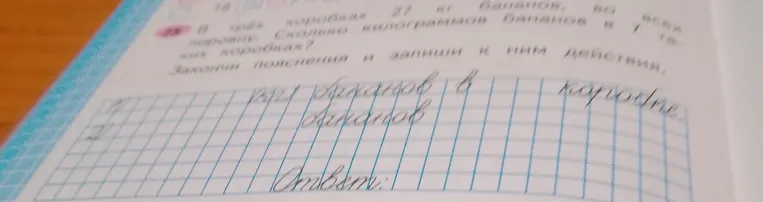 18
25 В трёх коробках 27 кг бананов, во всех
поровну. Сколько килограммов бананов в 7 та-
ких коробках?
Закончи пояснения и запиши к ним действия.
1) (кг) бананов в коробке
2) бананов
Ответ: